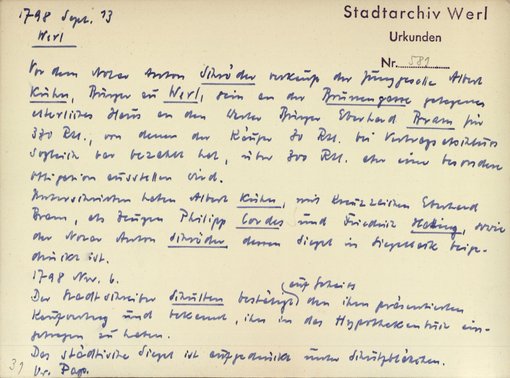 1798 Sept. 13
Stadtarchiv Werl
Urkunden
Werl
Nr. 581
Vor dem Notar Anton Schröder verkauft der Junggeselle Albert
Kuhn, Bürger zu Werl, sein an der Brunnengasse gelegenes
elterliches Haus an den Werler Bürger Eberhard Bram für
380 Rtl., von denen der Käufer 80 Rtl. bei Vertragsabschluss
sogleich bar bezahlt hat, über 300 Rtl. aber eine besondere
Obligation ausstellen wird.
Unterschrieben haben Albert Kuhn, mit Kreuzzeichen Eberhard
Bram, als Zeugen Philipp Cordes und Friedrich, sowie
der Notar Anton Schröder dessen Siegel in Siegellack beige-
drückt ist.
1798 Nov. 6.
Der Stadtschreiber Schulten bestätigt auf Geheiss den ihm präsentierten
Kaufvertrag und bekennt, ihn in das Hypothekenbuch ein-
getragen zu haben.
Das städtische Siegel ist aufgedrückt unter Schutzblättchen.
Or. Pap.
31